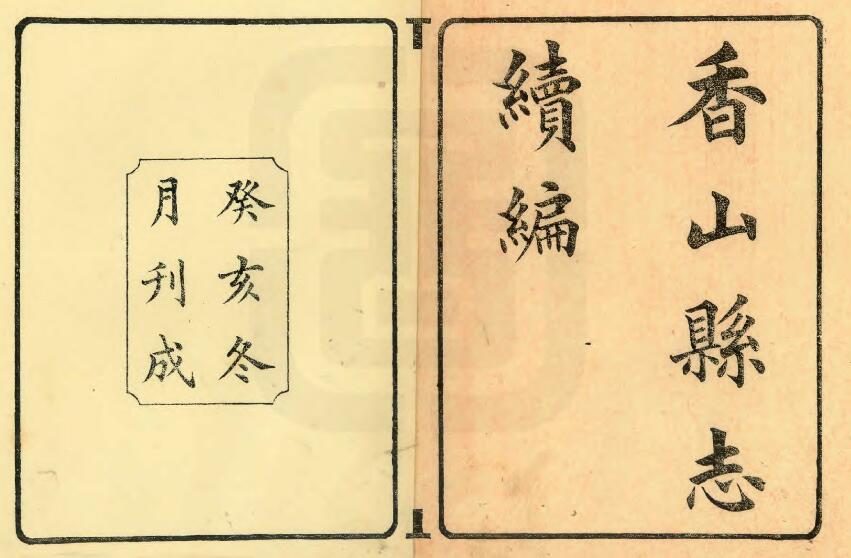 香山縣志
續編
癸亥冬
月刋成